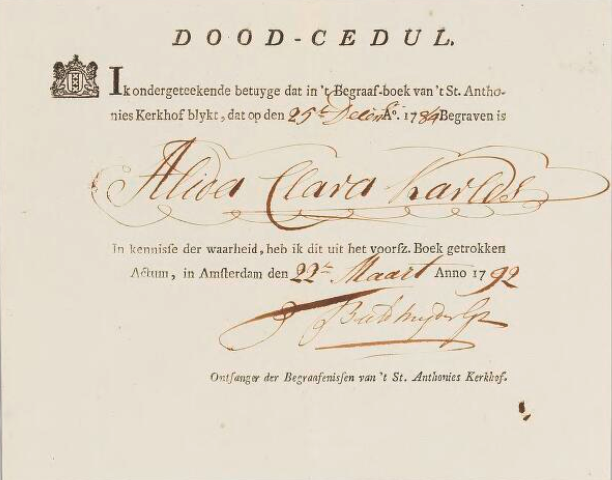 DOOD-CEDUL.
Ik ondergeteekende betuyge dat in 't Begraaf-boek van 't St. Antho-
nies Kerkhof blykt, dat op den 25e Decemb Ao. 1784 Begraven is
Alida Clara Karlds
In kennisse der waarheid, heb ik dit uit het voorsz. Boek getrokken
Actum, in Amsterdam den 22te Maart Anno 1792
Ontfanger der Begraafenissen van 't St. Anthonies Kerkhof.